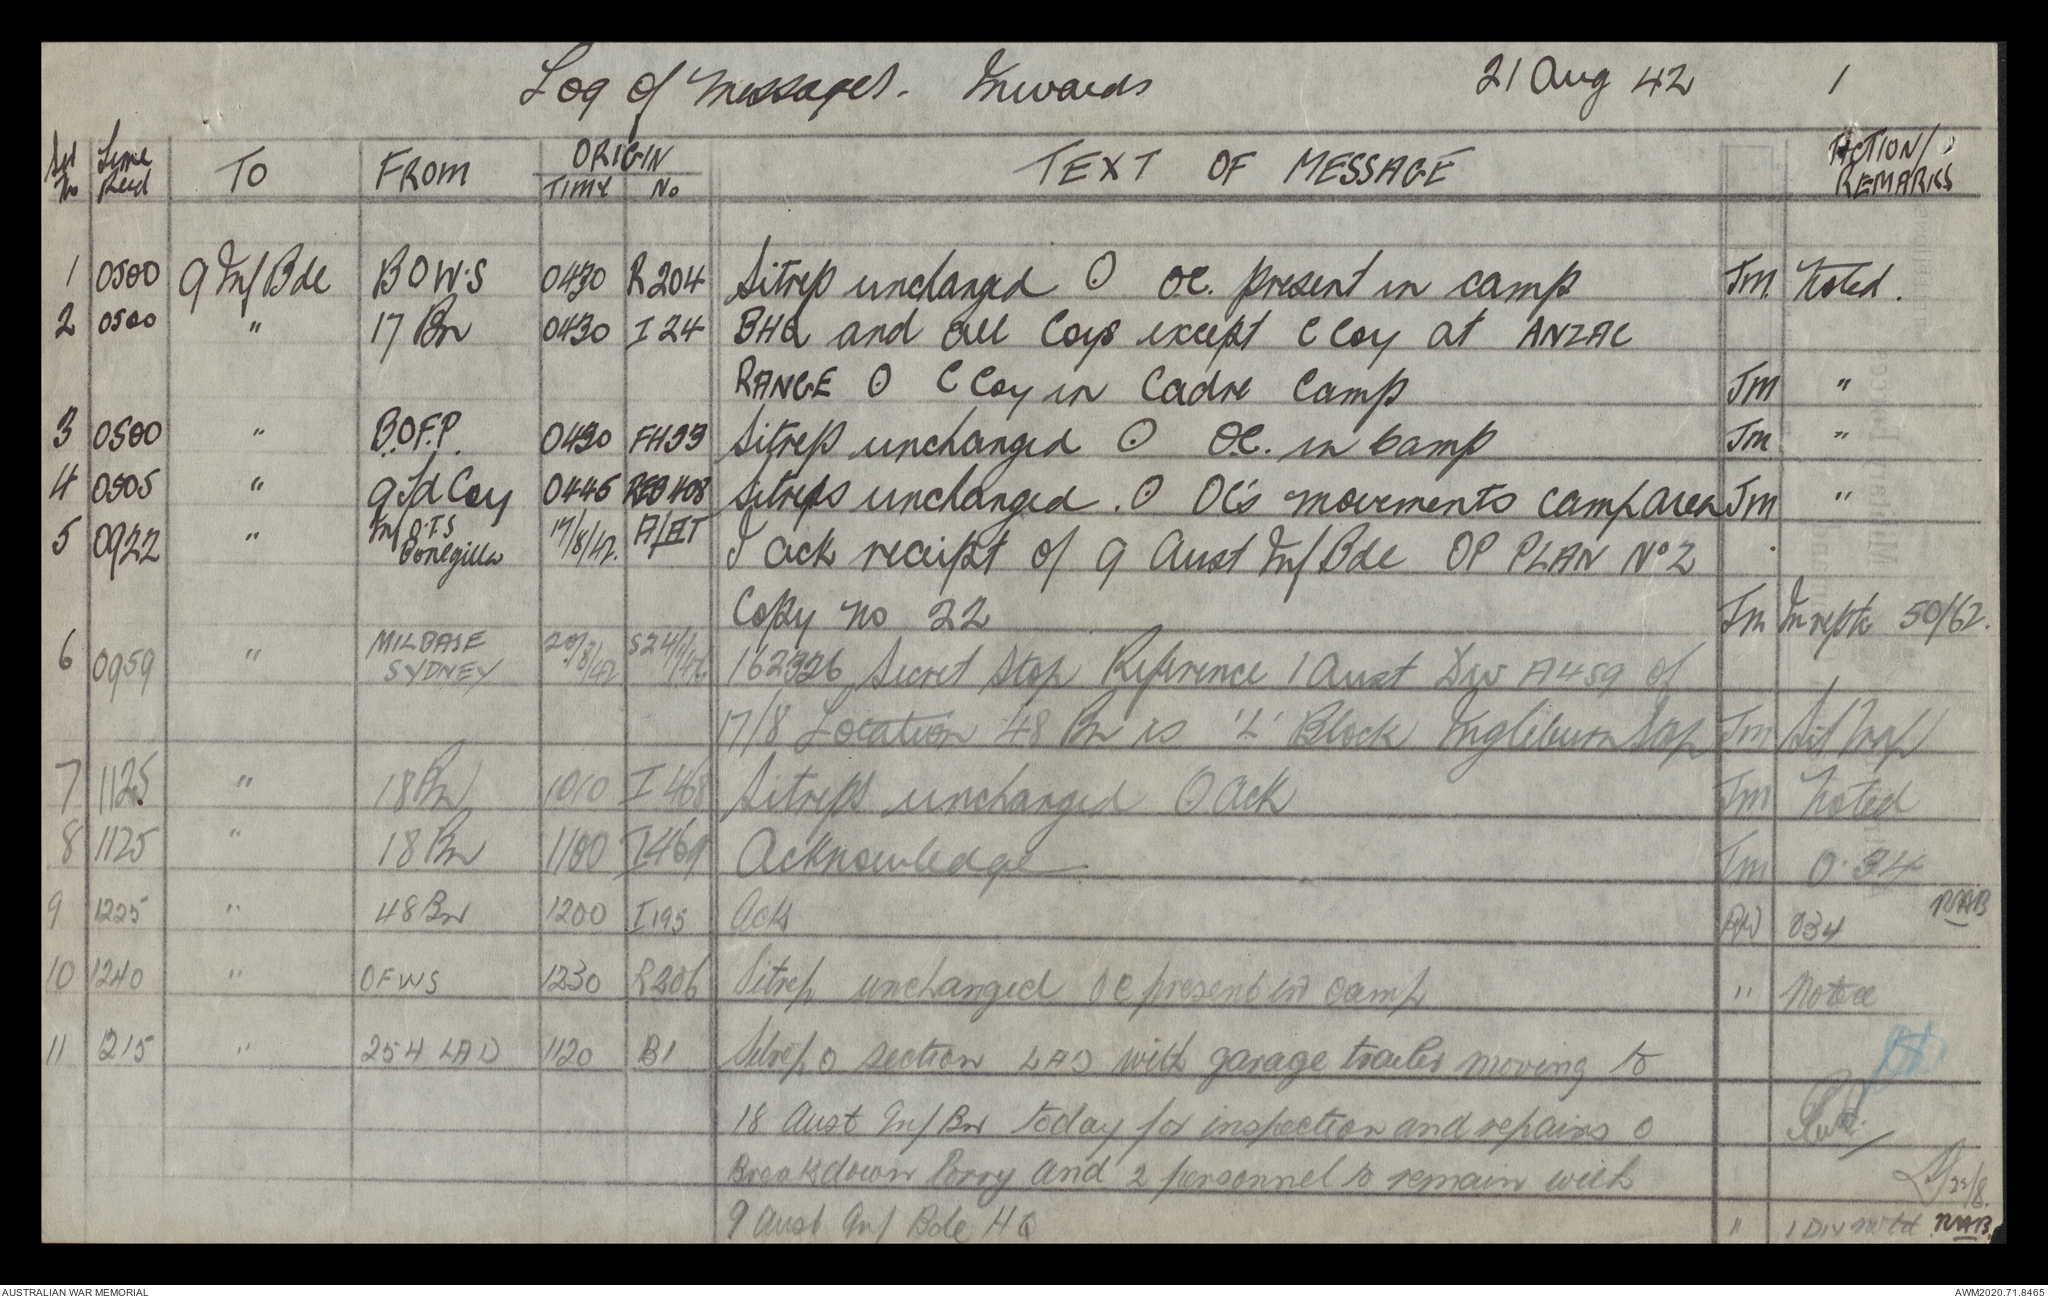 Log of Messages. Inwards 21 Aug 42 1
Srl No Time Recd TO FROM ORIGIN TIME No TEXT OF MESSAGE ACTION/ REMARKS
1 0500 9 Inf Bde B O W.S 0430 R204 Sitrep unchanged ʘ OC. present in camp Jm. Noted.
2 0500 " 17 Bn 0430 I 24 BHQ and all Coys except C Coy at ANZAC
RANGE ʘ C Coy in Cadre Camp Jm "
3 0500 " B.O.F.P. 0430 FH33 Sitrep unchanged ʘ OC. in camp Jm "
4 0505 " 9 Fd Coy 0445 408 Sitreps unchanged. ʘ OC's movements camp area Jm "
5 0922 " Inf O.T.S Bonegilla 17/8/42. I ack receipt of 9 Aust Inf Bde OP PLAN No 2
Copy no 22 Jm 50/62.
6 0959 " MILBASE SYDNEY 20/8/42 162326 Secret Stop Reference 1 Aust Div A459 of
17/8 Location 48 Bn is 'L' Block Ingleburn Stop Jm Sit Map
7 1125 " 18 Bn 1010 I 468 Sitreps unchanged ʘ Ack Jm Noted
8 1125 " 18 Bn 1100 I469 Acknowledge Jm O.34
9 1225 " 48 Bn 1200 I195 Ack 034 RAB
10 1240 " OFWS 1230 R206 Sitrep unchanged OC present in camp " Noted
11 1215 " 254 LAD 1120 B1 Sitrep o section LAD with garage trailer moving to
18 Aust Inf Bn today for inspection and repairs o
Breakdown lorry and 2 personnel to remain with
22/8.
9 Aust Inf Bde HQ " 1 Div notd RAB.
AUSTRALIAN WAR MEMORIAL AWM2020.71.8465